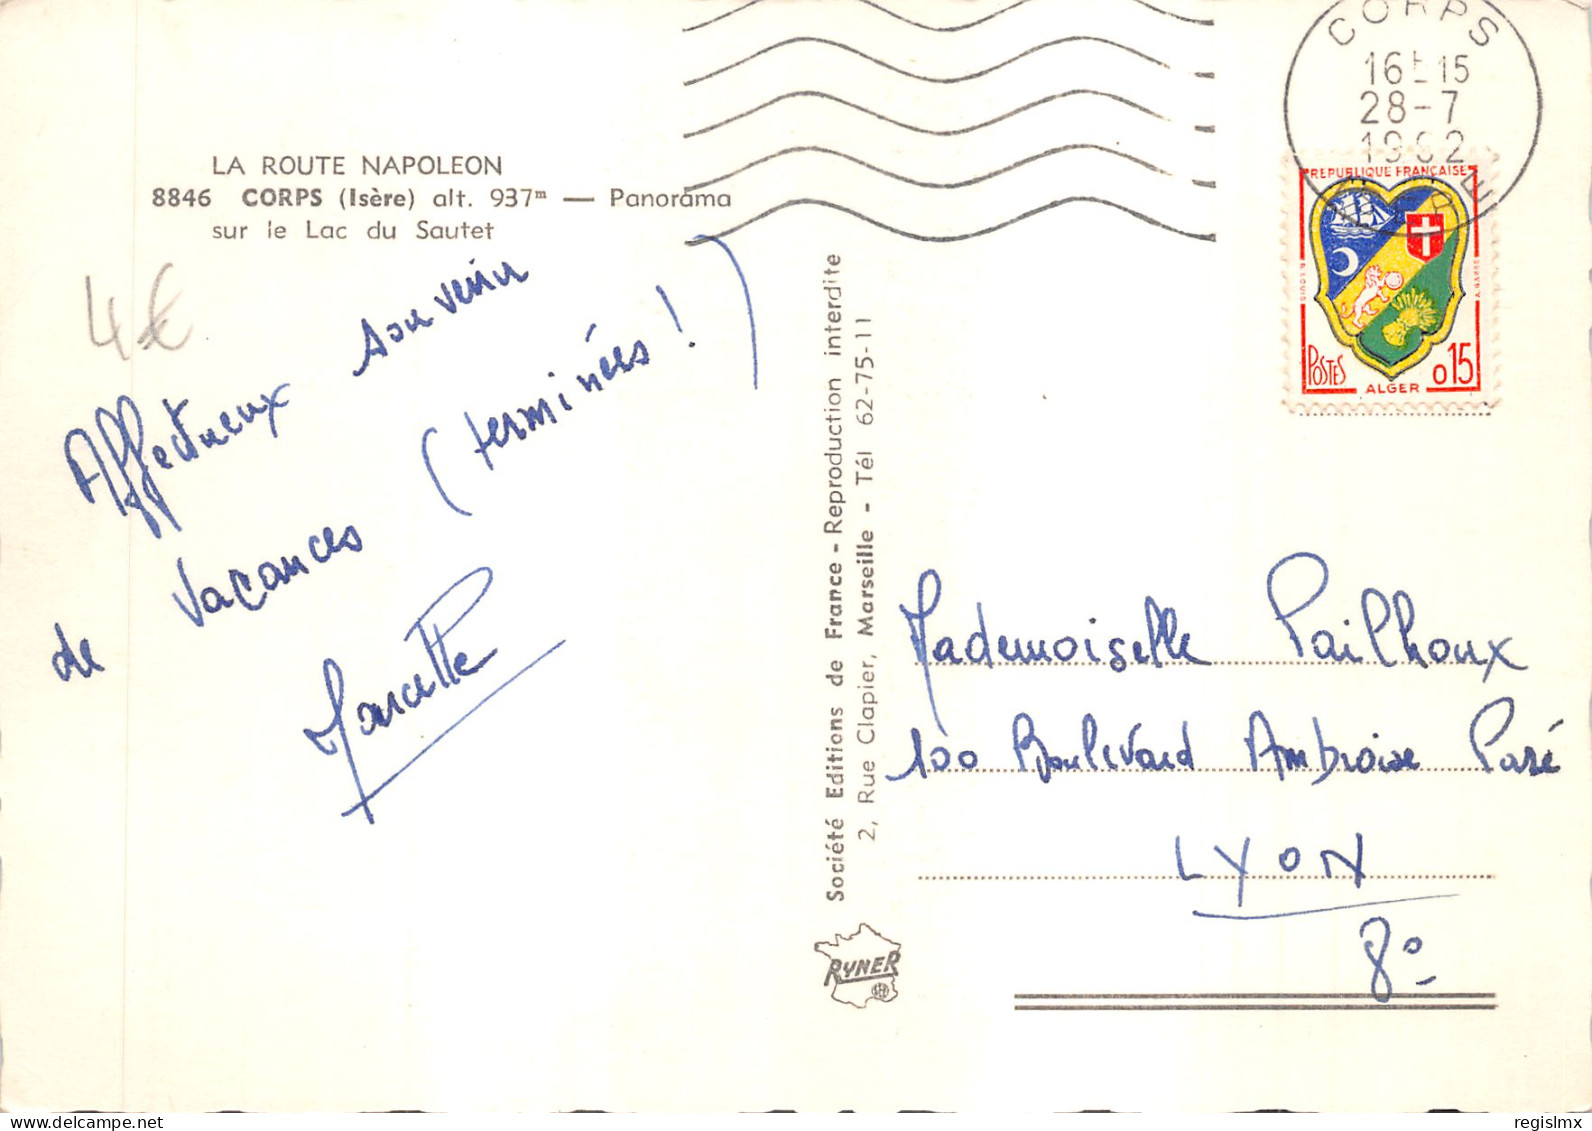 LA ROUTE NAPOLEON
8846 CORPS (Isère) alt. 937m — Panorama
sur le Lac du Sautet
4€
Affectueux souvenir
de vacances (terminées !)
Marcelle
Société Editions de France - Reproduction interdite
2, Rue Clapier, Marseille - Tél 62-75-11
RYNER
CORPS
16H15
28-7
1962
ISERE
REPUBLIQUE FRANÇAISE
POSTES
ALGER
0,15
Mademoiselle Pailhoux
100 Boulevard Ambroise Paré
LYON
8°
regislmx